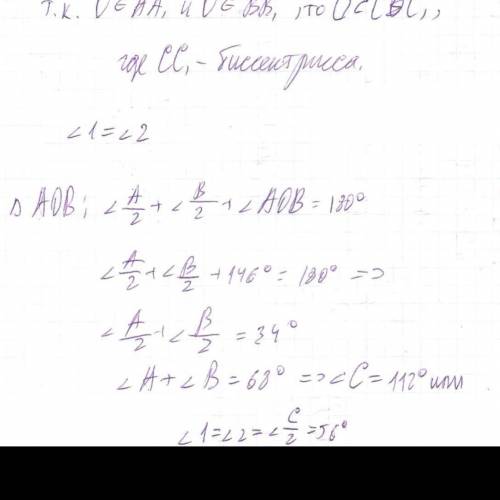 т.к. O∈AA₁ и O∈BB₁, то O∈CC₁,
где CC₁ - биссектрисса.
∠1=∠2
△AOB; ∠A/2 + ∠B/2 + ∠AOB = 180°
∠A/2 + ∠B/2 + 146° = 180° =>
∠A/2 + ∠B/2 = 34°
∠A + ∠B = 68° => ∠C = 112° или
∠1=∠2=∠C/2=56°